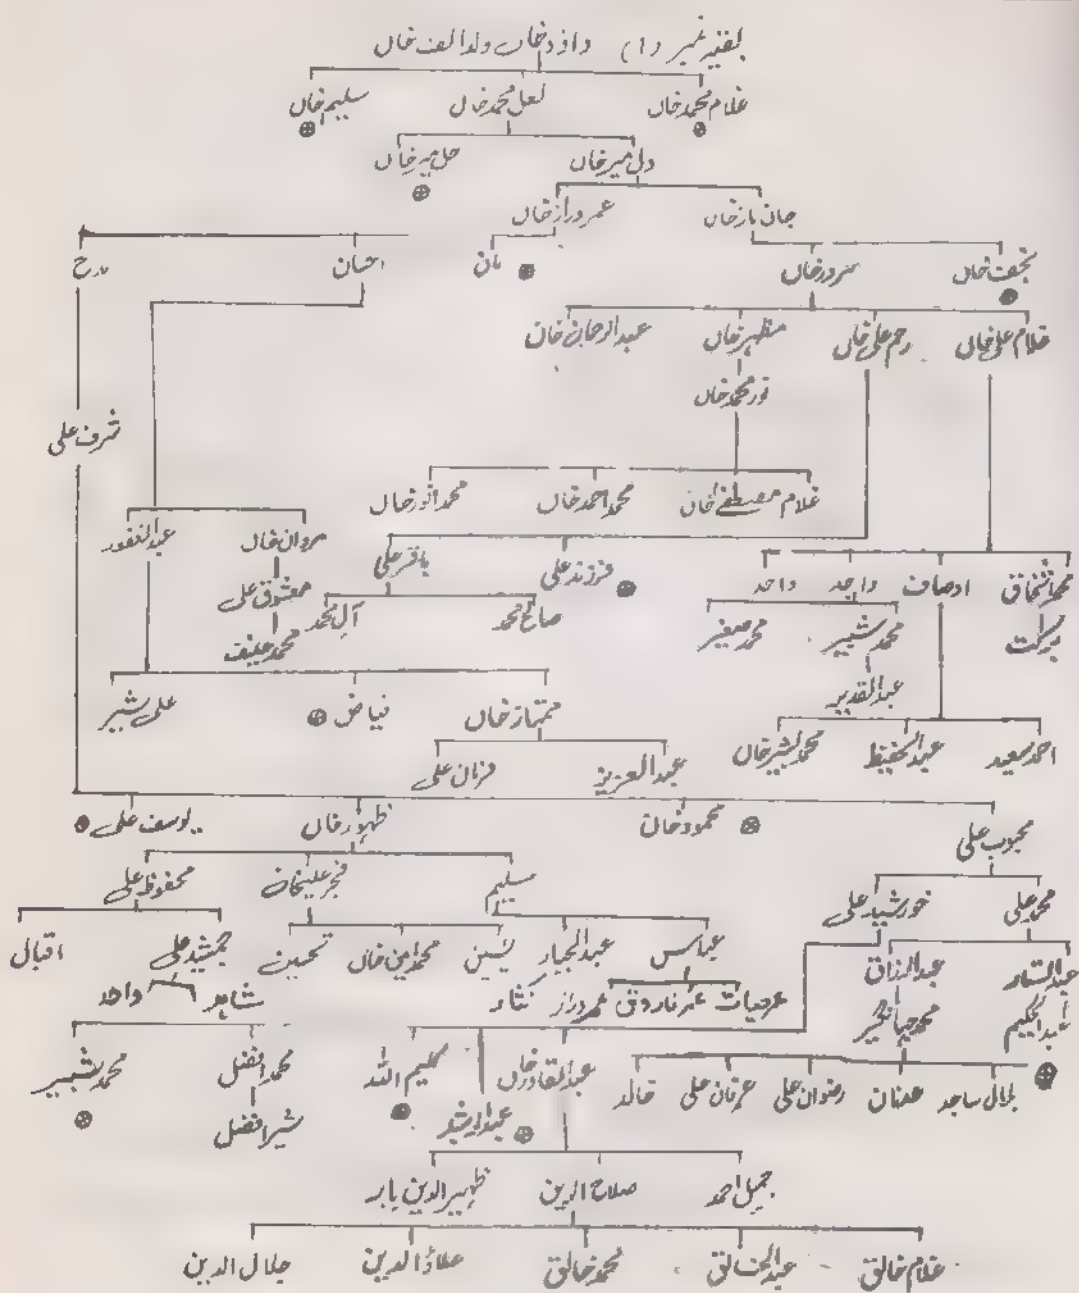 بقیہ نمبر (۱) داؤد خاں ولد الف خاں
غلام محمد خاں لعل محمد خاں سلیم خاں
دل میر خاں
جان باز خاں عمر دراز خاں
نجف خاں سرور خاں مان احسان
غلام علی خاں رحم علی خاں مظہر خاں عبدالرحمان خان
نور محمد خاں
شرف علی
غلام مصطفےٰ خان محمد احمد خاں محمد انور خاں
مردان خاں عبدالغفور
فرزند علی باقر علی
واجد واحد
برکت
معشوق علی
محمد شبیر محمد صغیر صالح محمد آل محمد
محمد حنیف
عبدالقدیر
ممتاز خاں فیاض علی شیر
احمد سعید عبدالحفیظ محمد بشیر خاں
عبدالعزیز
محبوب علی محمود خان ظہور خاں یوسف علی
محمد علی خورشید علی محفوظ علی
عبدالستار عبدالرزاق عباس عبدالجبار یٰسین محمد امین خاں تحسین جمشید علی اقبال
عبدالحکیم عمر حیات عمر فاروق عمر دراز نثار واحد
بلال ساجد عدنان رضوان علی عرفان علی خالد عبدالقادر خاں کلیم اللہ محمد افضل محمد بشیر
عبدالرشید شیر افضل
جمیل احمد صلاح الدین ظہیر الدین بابر
غلام خالق عبدالخالق محمد خالق علاؤالدین جلال الدین